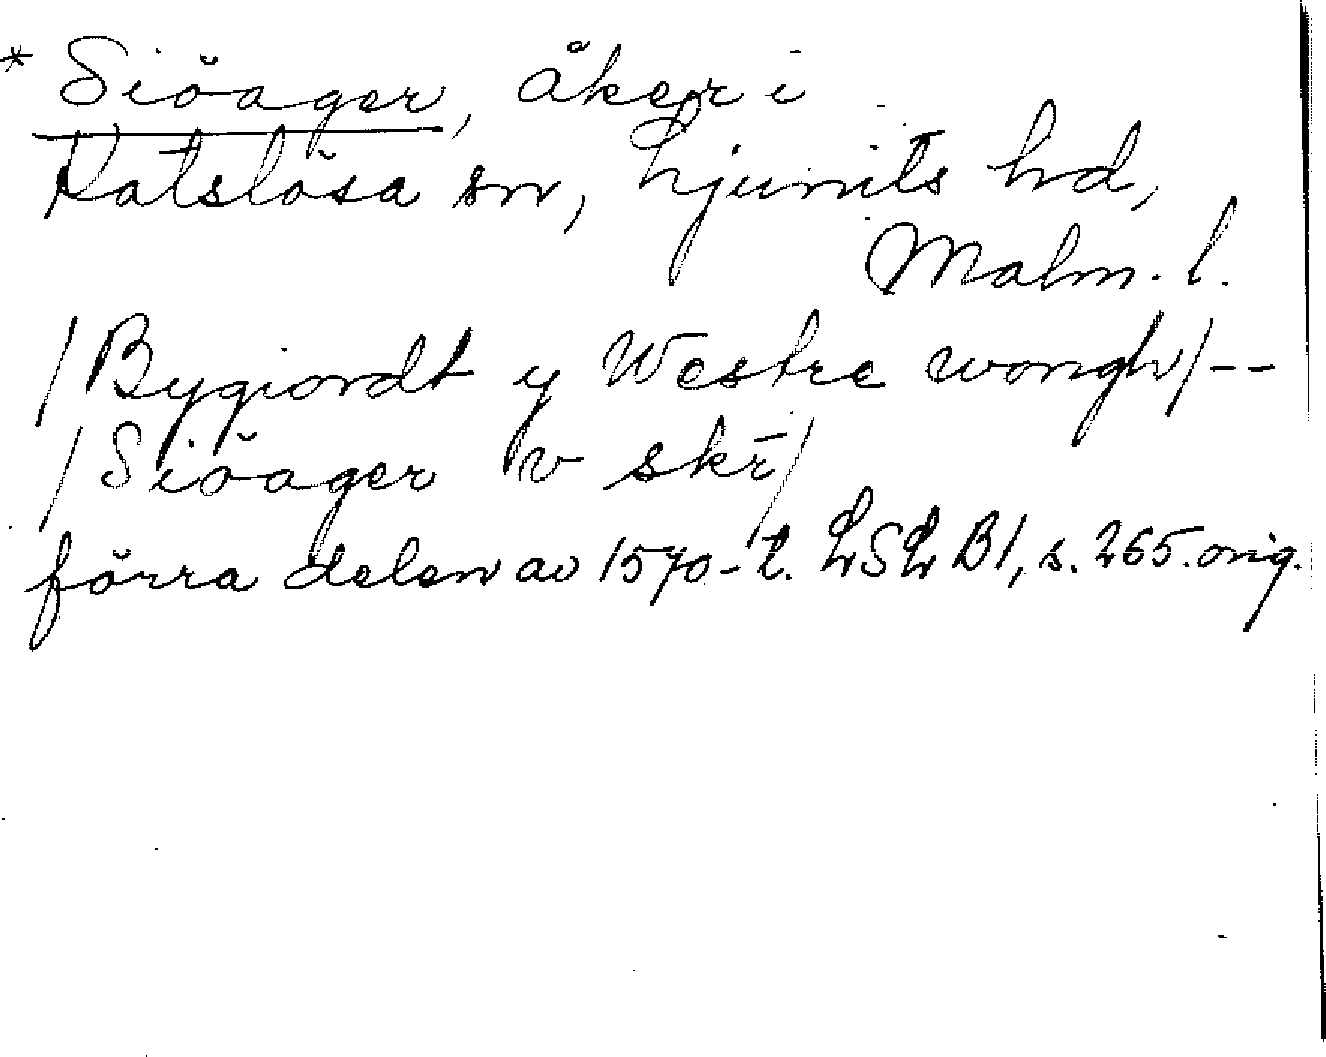 * Siöager, åker i
Katslösa sn, Ljunits hd,
Malm. l.
/Bygiordt y Westre wongh/--
/Siöager v skr̄/
förra delen av 1570-t. LSL B1, s. 265. orig.